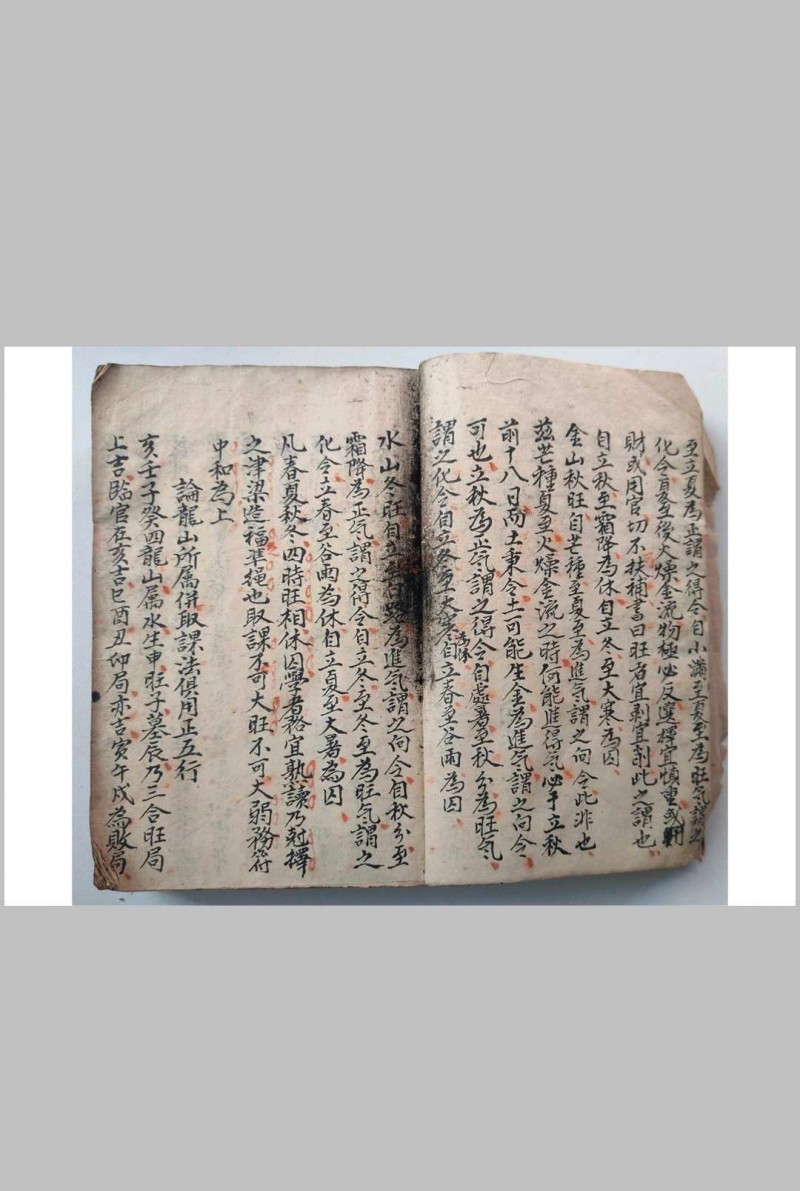 至立夏為正謂之得令自小滿至夏至為旺氣謂之
化令夏至後火燥金流物極必反選擇宜慎重或
財或用官切不扶補書曰旺者宜剥宜削此之謂也
自立秋至霜降為休自立冬至大寒為囚
金山秋旺自芒種至夏至為進气謂之向令此非也
茲芒種夏至火燥金流之時何能進得气必于立秋
前十八日而土秉令土可能生金為進气謂之向令
可也立秋為正气謂之得令自處暑至秋分為旺气
謂之化令自立冬至大寒為休自立春至谷雨為囚
水山冬旺自立為進气謂之向令自秋分至
霜降為正气謂之得令自立冬至冬至為旺气謂之
化令立春至谷雨為休自立夏至大暑為囚
凡春夏秋冬四時旺相休囚學者務宜熟讀乃尅擇
之津梁造福準绳也取課不可大旺不可大弱務符
中和為上
論龍山所属併取課法俱用正五行
亥壬子癸四龍山属水生申旺子墓辰乃三合旺局
上吉臨官在亥吉巳酉丑印局亦吉寅午戌為敗局